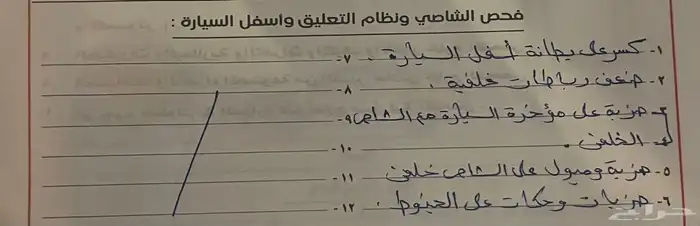 فحص الشاصي ونظام التعليق واسفل السيارة :
١- كسر على بطانة أسفل السيارة . ٧-
٢- ضعف رباطات خلفية . ٨-
٣- ضربة على مؤخرة السيارة مع الشاص ٩-
٤- الخلفي . ١٠-
٥- ضربة وميول على الشاص خلفي ١١-
٦- ضربات وحكات على الجنوط . ١٢-
حراج